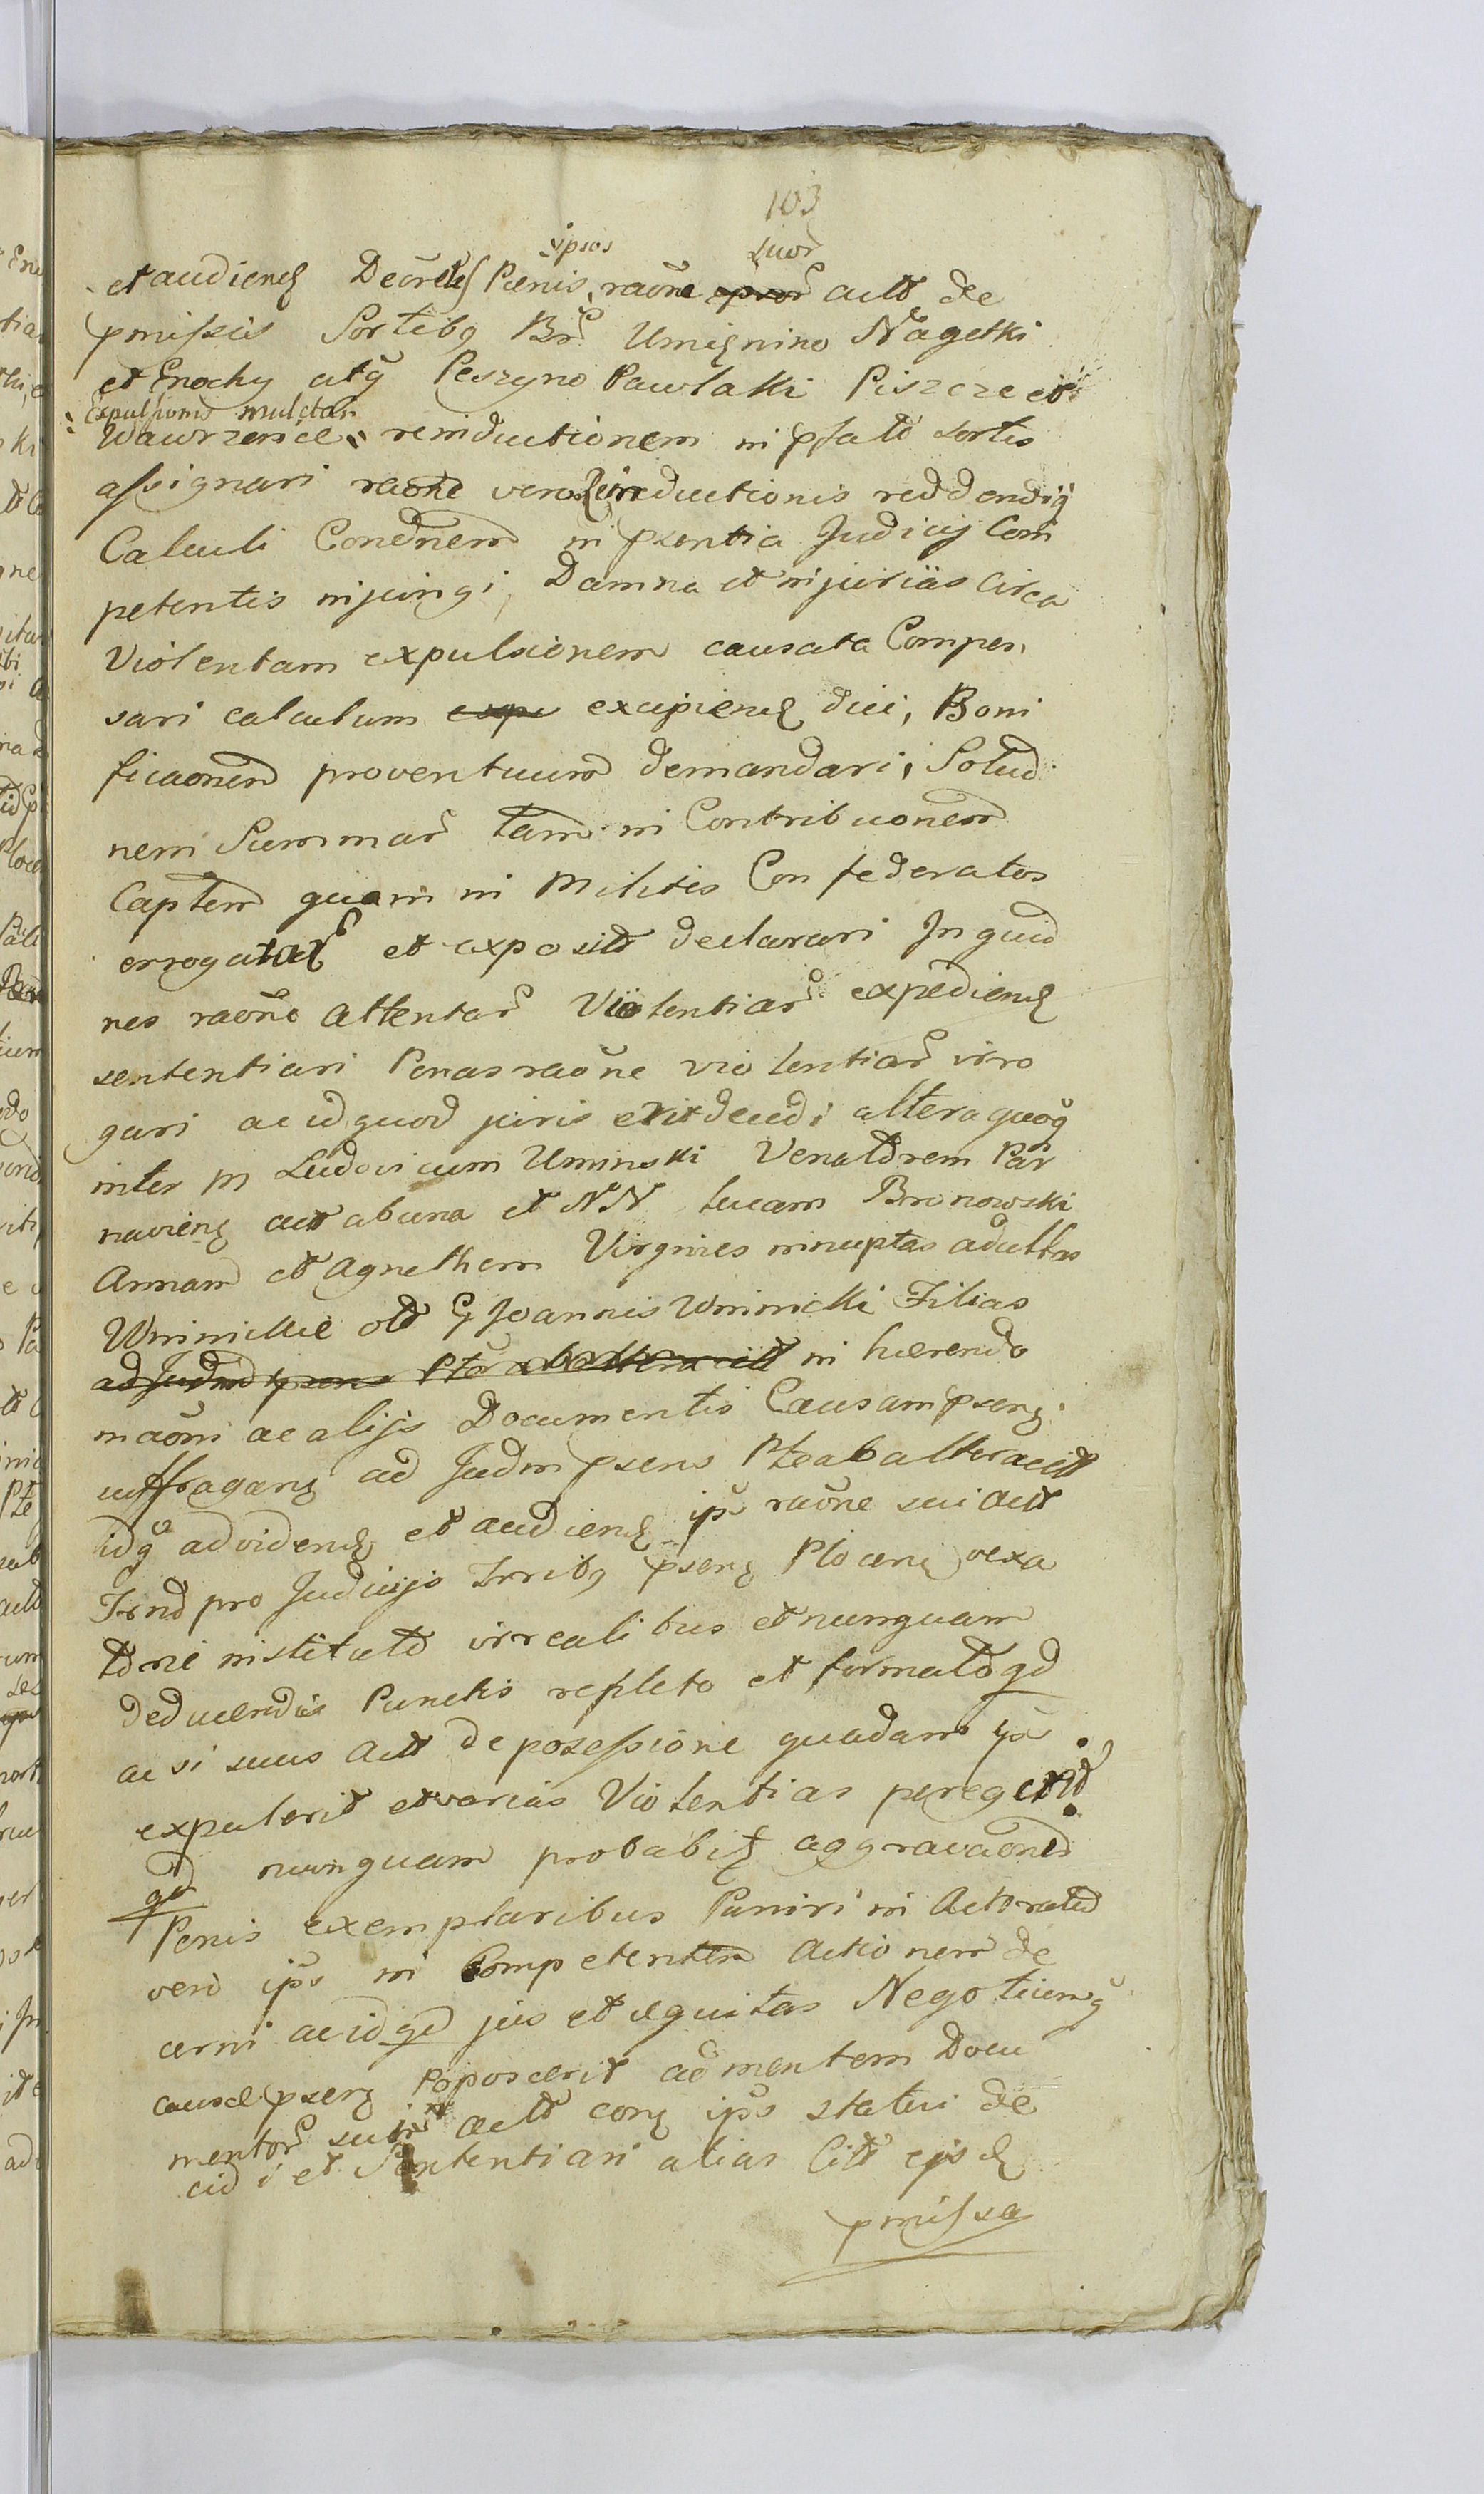 103
ipsos suor̃
et audienđ Decretes Pænis raõne ipsor̃ actt de
pmissis Sortibq Br̃ Umięnino Nagetki
et Enochy atq̃ Peszyno Pawlaki Piszcze et
Expulsionis mulctari
Wawrzence reinductionem in pfato sortes
assignari raone vero Reinductionis reddendiq̃
Calculi Condnem in psentia Judicij Com
petentis injungi, Damna et injurias circa
Violentam expulsionem causata Compen
sari calculum expi excipienđ dici, Boni
ficaonem proventuum demandari, Solud
nem Summar̃ tam in Contribuonem
Captem quam in Milites Confederatos
errogatar̃ et exposit declarari Inquid
nes raõne attentar̃ Violentiar̃ expedienđ
sententiari Penas raõne violentiar̃ irro
gari ac id quod juris erit decedi altera quoq̃
inter M Ludovicum Uminski Venatorem Par
navienq act ab una et NN Lucam Bronowski
Annam et Agnethem Virgines innuptas adultas
Uminickie olt G Joannis Uminicki Filias
ad Judm psens Pte ab altera citt in hærendo
maõni ac alijs Documentis Causam psenq
suffraganq ad Judm psens Pte ab altera citt
idq̃ ad videnđ et audienđ ips raõne sui actt
Trnd pro Judicijs Trribq psenq Plocenq vexa
torie institutt irrealibus et nunquam
deducendis Punctis repleto et formato qd
ac si suus Actt de possessione quadam ips
expulerit et varias Violentias peregerit
qd nunquam probabit aggravaones
Penis exemplaribus Puniri in Actoratu
vero ips in Competentem Actionem de
cerni ac id qd jus et æquitas Negotiumq̃
causæ psenq poposcerit ad mentem Docu
mentor̃ suor̃ actt conq ips statui de
cidi et Sententiari alias Citt ejsđ
pmissa